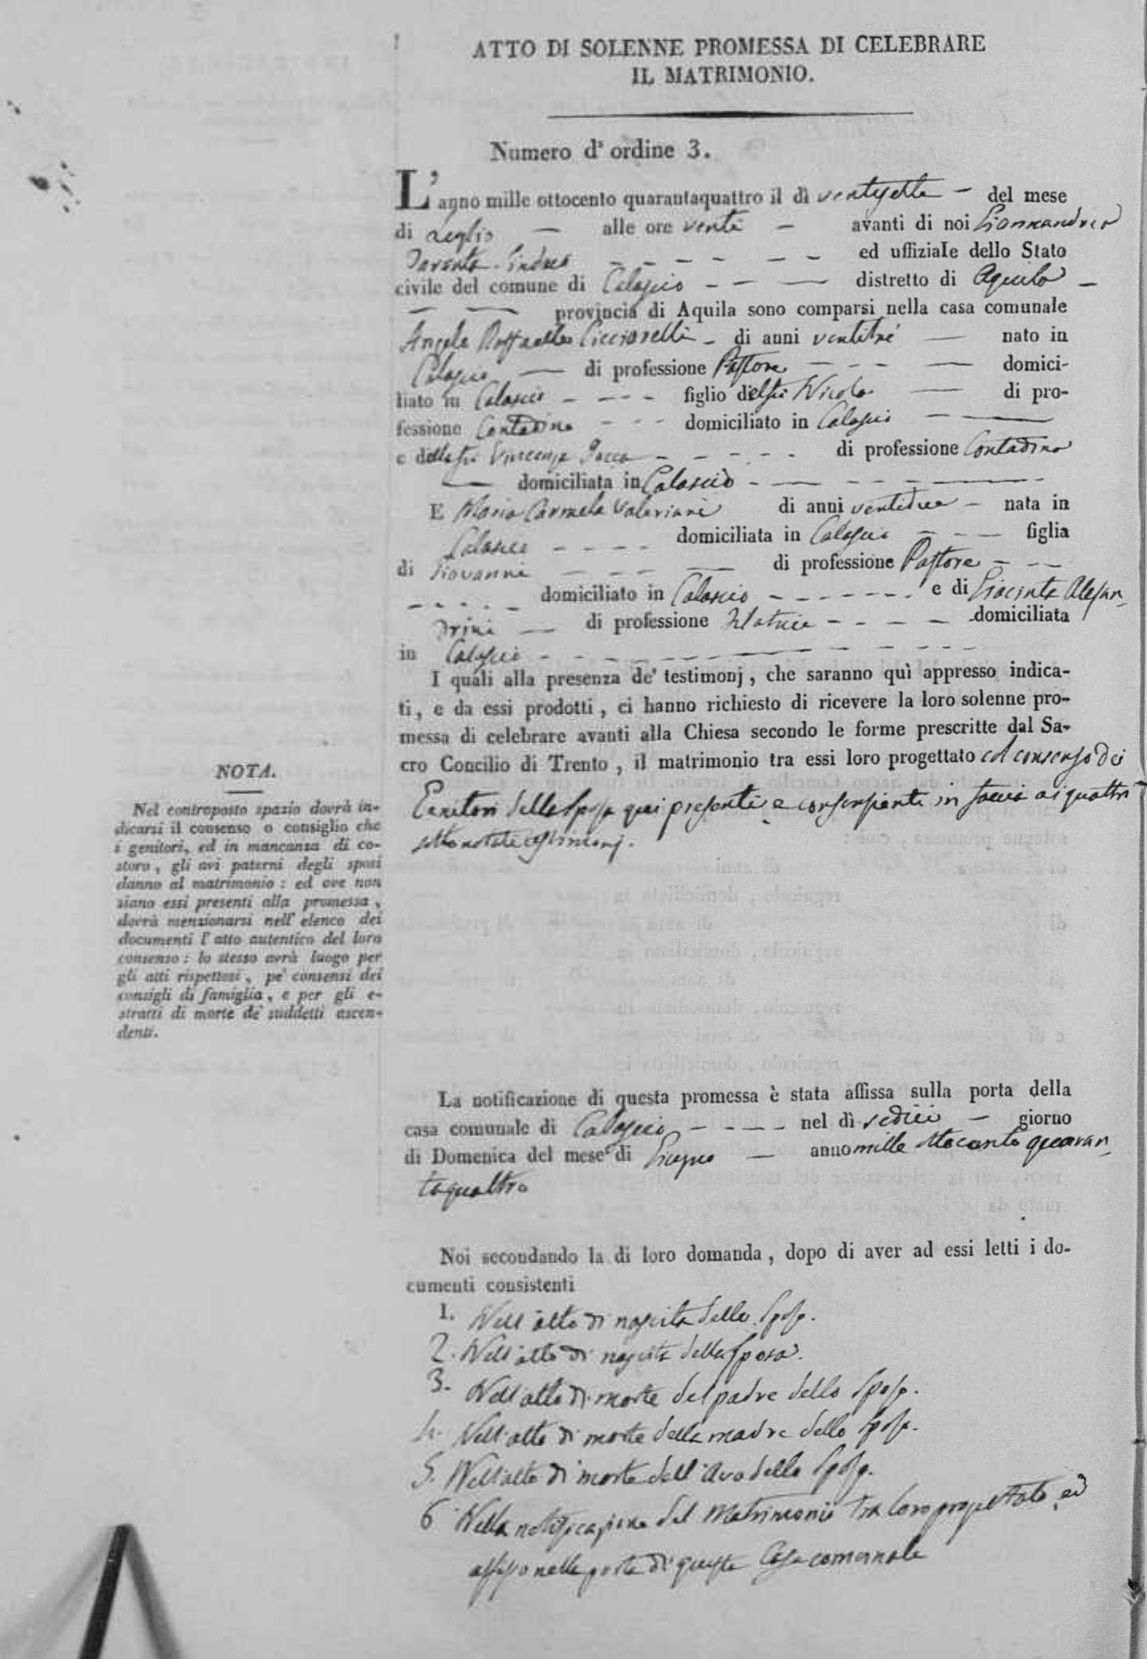 ATTO DI SOLENNE PROMESSA DI CELEBRARE
IL MATRIMONIO.
Numero d' ordine 3.
L' anno mille ottocento quarantaquattro il dì ventisette - del mese
di Luglio — alle ore venti — avanti di noi Giannandrea
Taranta Sindaco - - - - - - ed uffiziale dello Stato
civile del comune di Calascio - - — distretto di Aquila -
— — provincia di Aquila sono comparsi nella casa comunale
Angelo Raffaele Cicciarelli - di anni ventitrè — nato in
Calascio — di professione Pastore — - - — domici-
liato in Calascio - - - - figlio del fu Nicola — di pro-
fessione Contadino - - - domiciliato in Calascio - —
e della fu Vincenza - - - - - di professione Contadina
— domiciliata in Calascio - — - - - - - —
E Maria Carmela Valeriani di anni ventidue - nata in
Calascio - - - - domiciliata in Calascio - - — figlia
di Giovanni — — — di professione Pastore - - -
- - - - - domiciliato in Calascio - - - - - - - e di Giacinta Alesan-
drini — di professione Filatrice - - - - domiciliata
in Calascio - - - - - — - - - -
I quali alla presenza de' testimonj, che saranno quì appresso indica-
ti, e da essi prodotti, ci hanno richiesto di ricevere la loro solenne pro-
messa di celebrare avanti alla Chiesa secondo le forme prescritte dal Sa-
cro Concilio di Trento, il matrimonio tra essi loro progettato col consenso dei
Genitori della Sposa qui presenti e consenzienti in faccia ai quattro
sottonotati testimonj.
NOTA.
Nel controposto spazio dovrà in-
dicarsi il consenso o consiglio che
i genitori, ed in mancanza di co-
storo, gli avi paterni degli sposi
danno al matrimonio: ed ove non
siano essi presenti alla promessa,
dovrà menzionarsi nell' elenco dei
documenti l' atto autentico del loro
consenso: lo stesso avrà luogo per
gli atti rispettosi, pe' consensi dei
consigli di famiglia, e per gli e-
stratti di morte de' suddetti ascen-
denti.
La notificazione di questa promessa è stata affissa sulla porta della
casa comunale di Calascio - - - - - nel dì sedici - giorno
di Domenica del mese di Giugno — anno mille ottocento quaran-
taquattro
Noi secondando la di loro domanda, dopo di aver ad essi letti i do-
cumenti consistenti
1. Nell' atto di nascita dello Sposo.
2. Nell' atto di nascita della Sposa.
3. Nell' atto di morte del padre dello Sposo.
4. Nell' atto di morte della madre dello Sposo.
5. Nell' atto di morte dell' Avo dello Sposo.
6 Nella notificazione del Matrimonio tra loro progettato, ed
affisso nella porta di questa Casa comunale